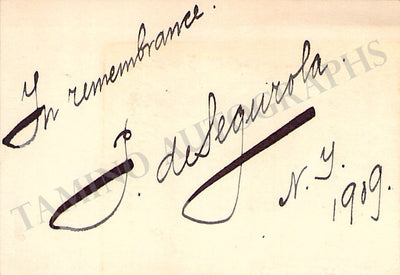 In remembrance.
P. de Segurola.
N. Y.
1909.
TAMINO AUTOGRAPHS